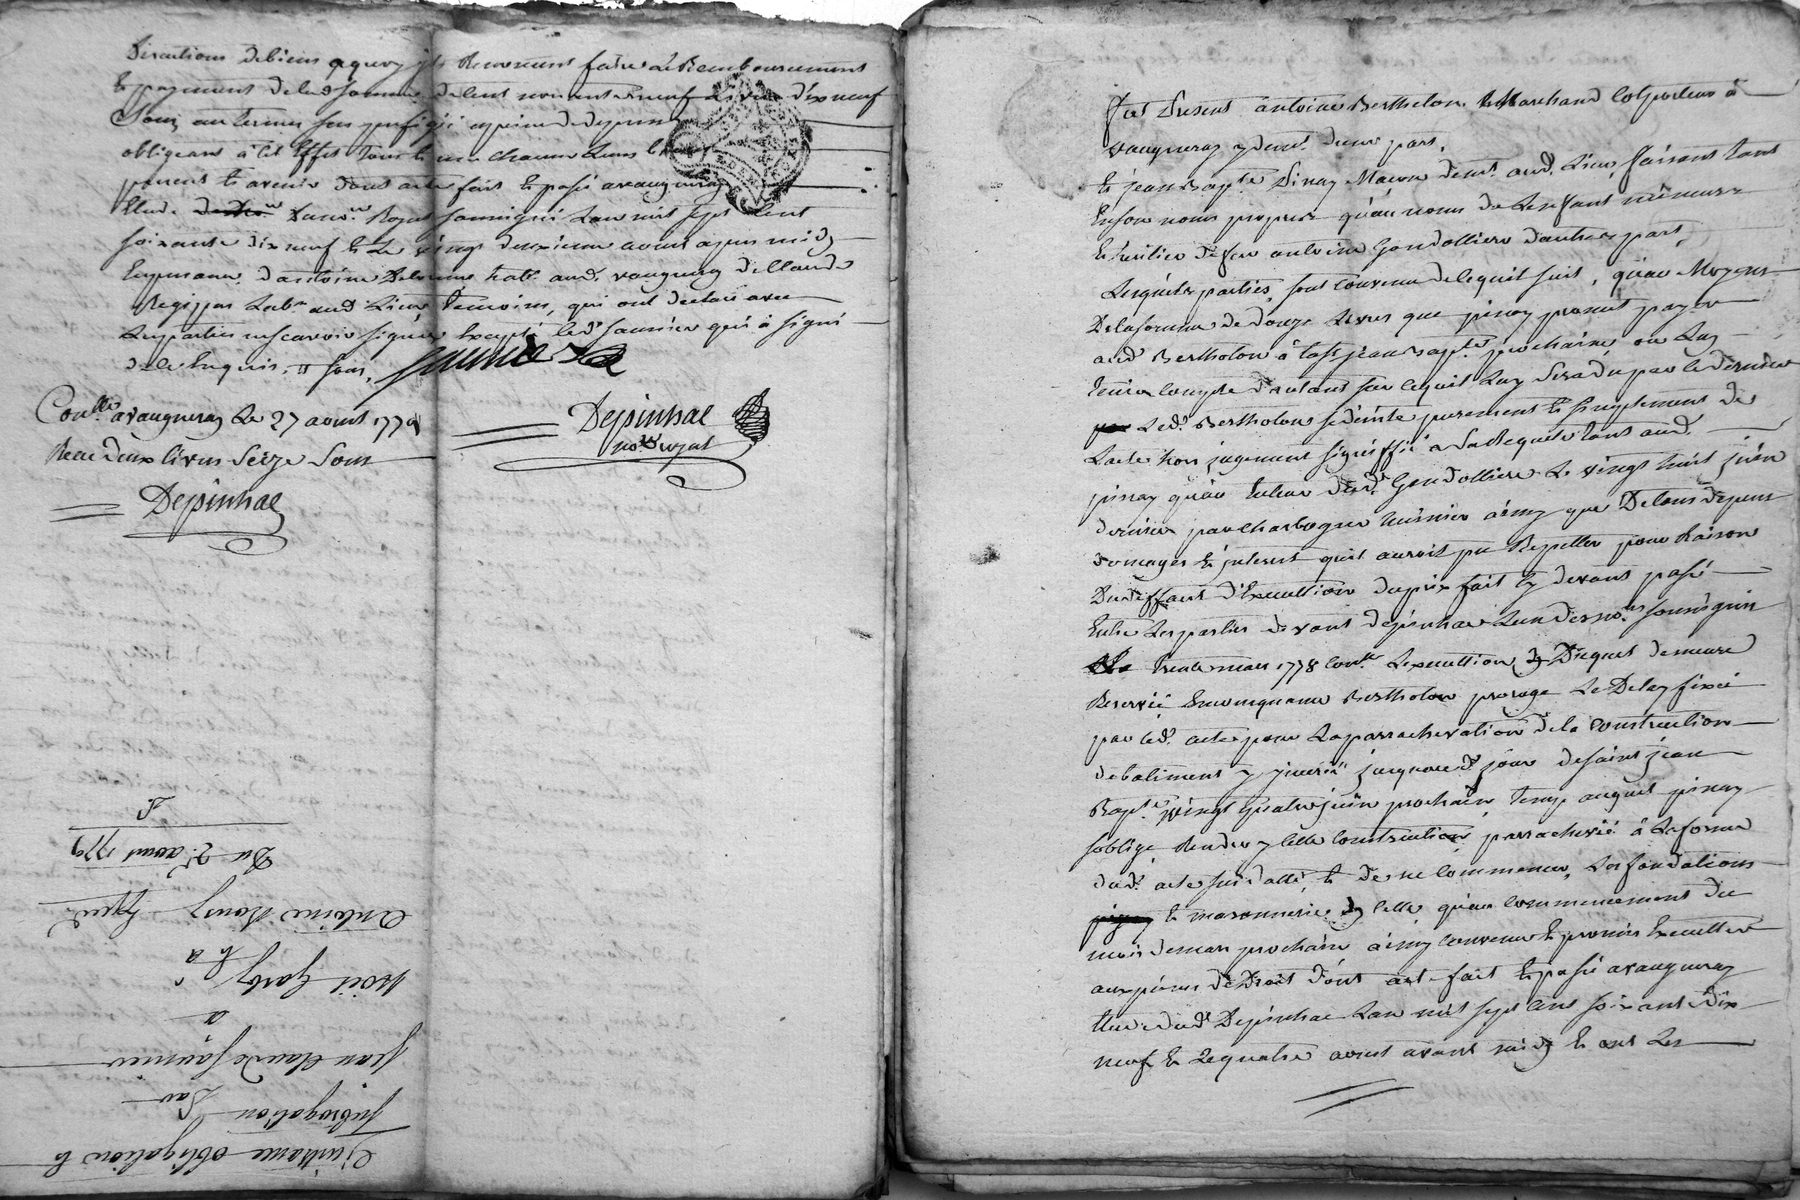 Directions de biens
faire le Remboursement
Et payement de lad. somme de Cent nonante neuf livres dix neuf
Sous aux termes sus prefigés a peine de depens
obligeans à cet Effet tous et un chacun Leurs biens
presens et avenir dont acte fait et passé a vaugneray
Etude du No.re Royal soussigné Lan mil sept Cent
soixante dix neuf et Le vingt deuxieme aoust apres midy
En presence d'antoine habt. aud. vaugneray et Claude
aud. Lieu, temoins, qui ont declaré avec
Les parties ne scavoir signer Excepté led. Saunier qui a signé
de ce Enquis, sous,
Saunier
Con.lle a vaugneray Le 27 aoust 1779
Receu deux livres Seize Sous
Depinhac
Depinhac
no.re royal
Quittance obligation Et
subrogation Par
Jean Claude Saunier
a
Et a
Antoine
Du 22 aoust 1779
Fut Present antoine Bertholon Marchand Colporteur à
vaugneray y demt. d'une part,
Et jean Bapte. Pinay Macon demt. aud. Lieu, faisant tant
En son nom propre qu'au nom de Les Enfans mineurs
Et heritiers de feu antoine Gondolliere d'autre part,
Lesquelles parties, sont convenu de ce qui suit, qu'au Moyens
De la somme de douze Livres que pinay promet payer
aud. Bertholon à la st jean Bapte. prochaine ou Luy
tenir Compte d'autant sur ce quil Luy Sera du par le dernier
Led. Bertholon se deiste purement et simplement de
L'acte hors jugement signiffié a Sa Requete tant aud.
pinay qu'au tuteur desd. Gondolliere Le vingt huit juin
dernier par Charbogne huissier ainsy que De tous depens
domages Et interest quil auroit pu Repeller pour Raison
Du deffaut d'Execution du prix fait cy devant passé
Entre Les parties devant depinhac Lun des no.res soussignés
Le trente mars 1778 Con.lle L'execution Duquel demeure
Reservée En conséquence Bertholon proroge Le Delay fixée
par led. acte pour La parrachevation de la construction
de batiment y jusques au d. jour de saint jean
Bapte. vingt quatre juin prochain, temps auquel pinay
soblige Rendre celle construction parrachevée à La forme
dud. acte sus datté, Et de ne commencer, Les fondations
Et massonnerie de celle qu'au commencement du
mois de mars prochain ainsy convenu Et promis Executter
aux peines de Droit dont act fait Et passé a vaugneray
Etude dud. Depinhac Lan mil sept cent soixante Dix
neuf Et Le quatre aoust avant midy Et ont Les